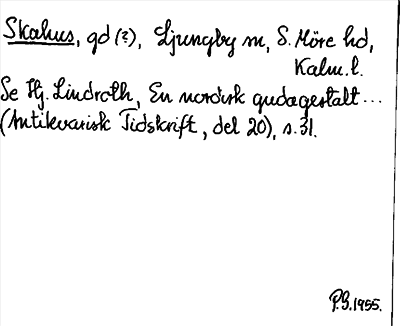 Skahus, gd (?), Ljungby sn, S. Möre hd,
Kalm. l.
Se Hj. Lindroth, En nordisk gudagestalt...
(Antikvarisk Tidskrift, del 20), s. 31.
P.G. 1955.